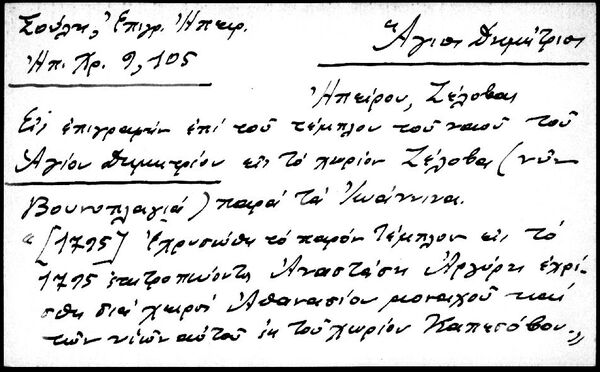 Σούλη, Ἐπιγρ. Ἠπειρ.
Ἠπ. Χρ. 9, 105
Ἅγιος Δημήτριος
Ἠπείρου, Ζέλοβας
Εἰς ἐπιγραφὴν ἐπὶ τοῦ τέμπλου τοῦ ναοῦ τοῦ
Ἁγίου Δημητρίου εἰς τὸ χωρίον Ζέλοβα (νῦν
Βουνοπλαγιά) παρὰ τὰ Ἰωάννινα.
"[1795] Ἐχρυσώθη τὸ παρὸν τέμπλον εἰς τὸ
1795 ἐπιτροπεύοντος Ἀναστάση Ἀργύρη ἐχρί-
σθη διὰ χειρὸς Ἀθανασίου μοναχοῦ καὶ
τῶν υἱῶν αὐτοῦ ἐκ τοῦ χωρίου Καπεσόβου."